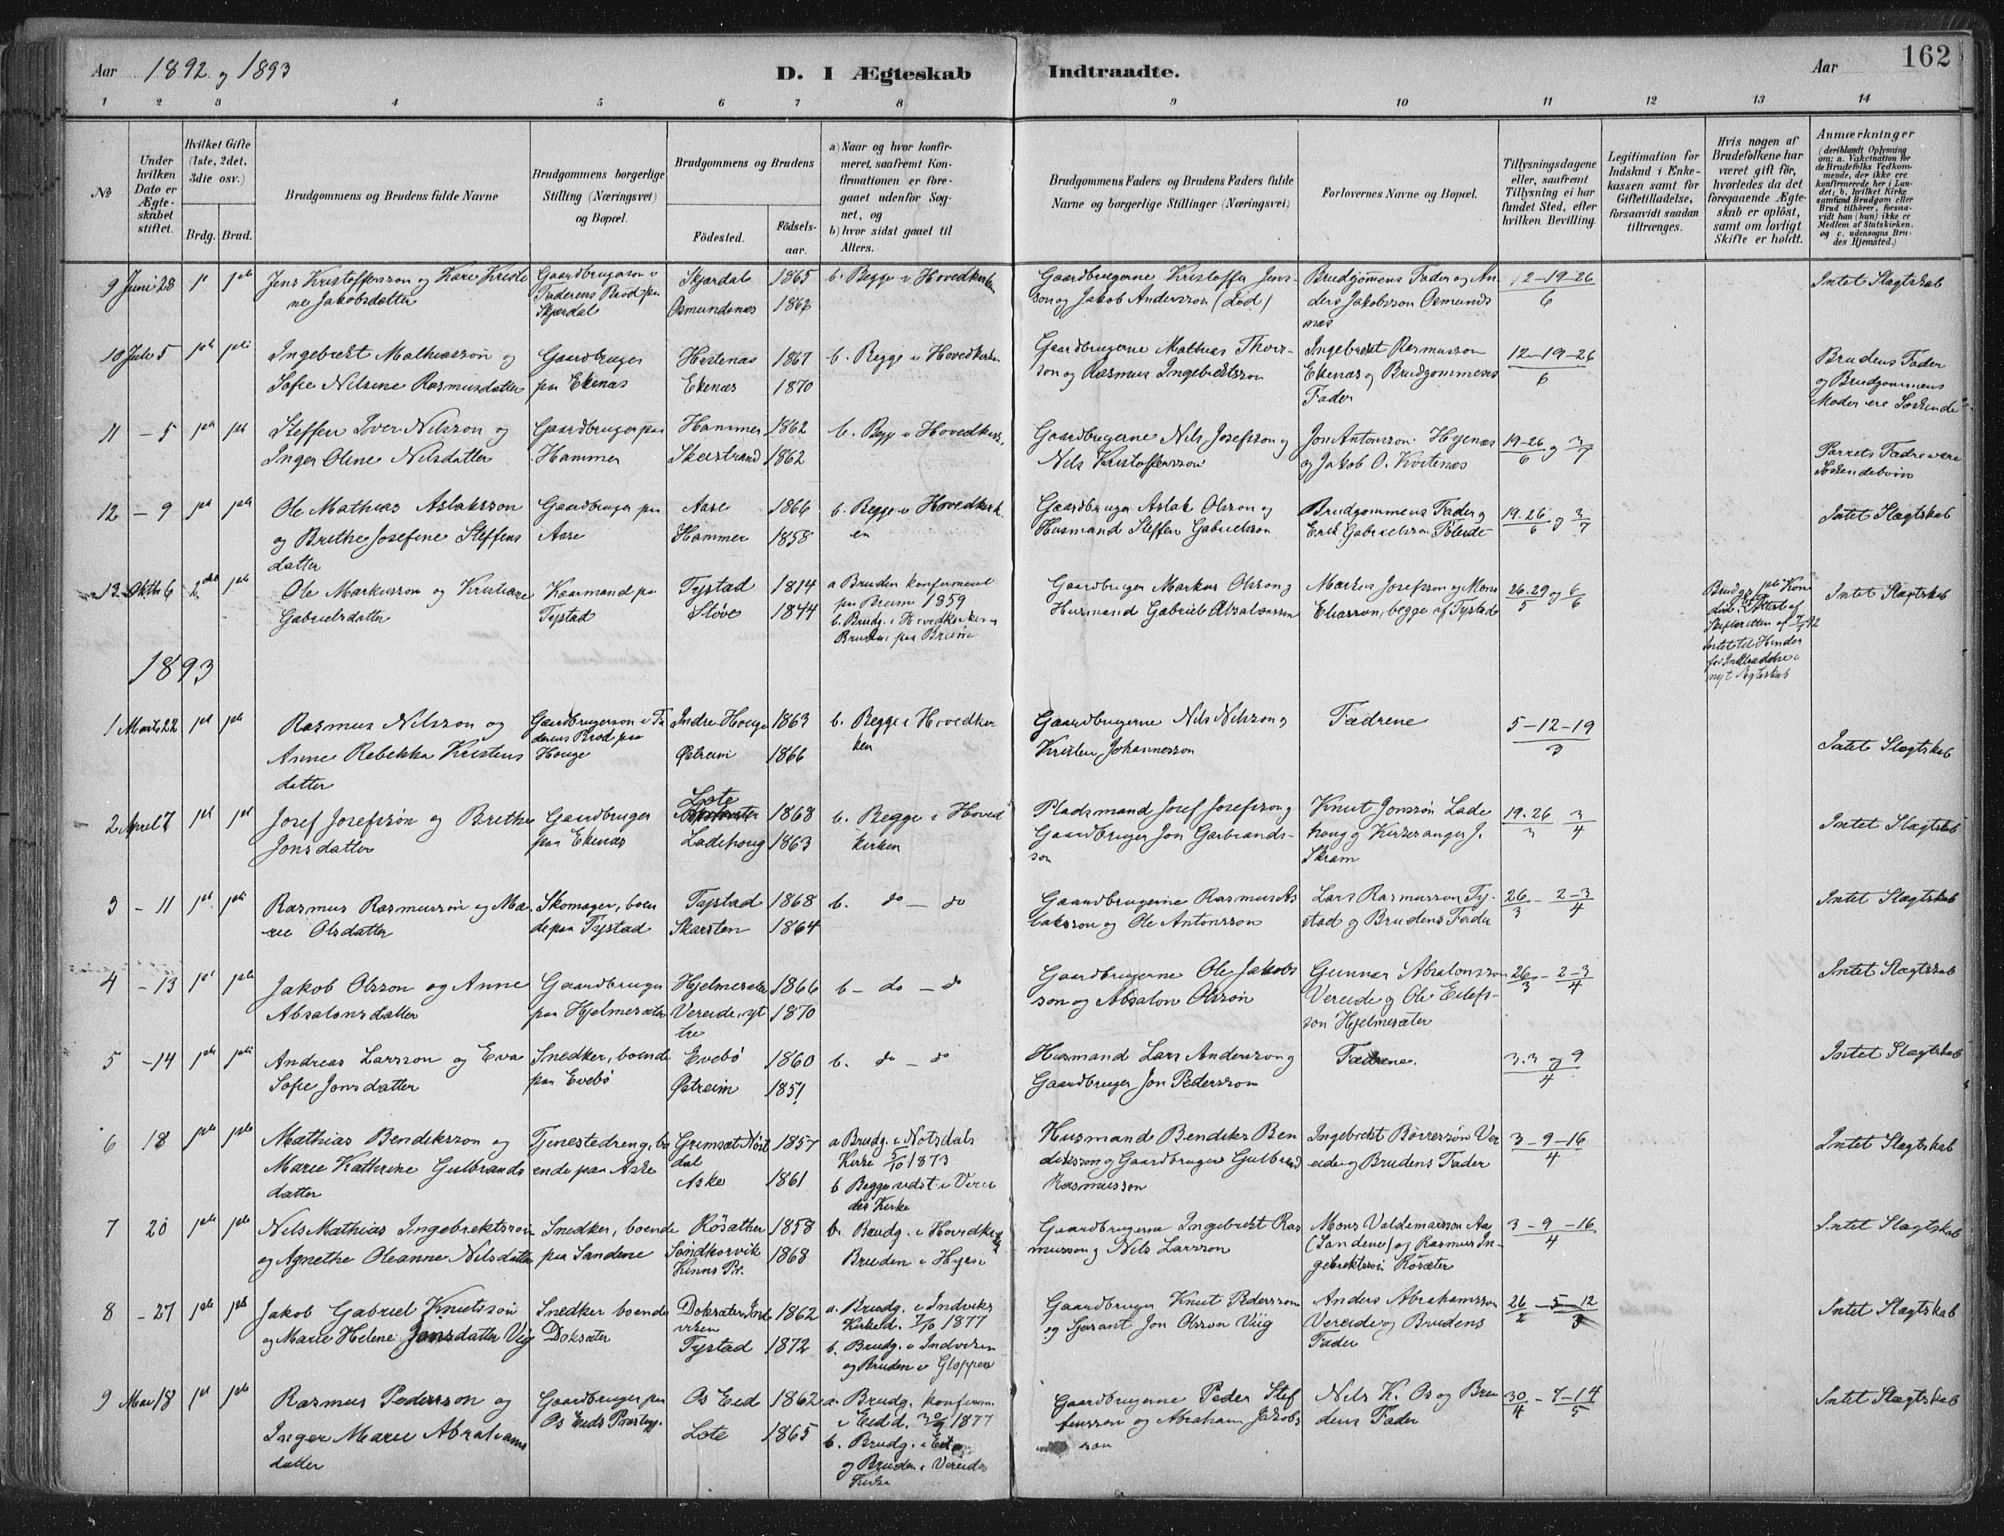 Aar 1892 og 1893
D. I Ægteskab Indtraadte.
Aar
162
1 2 3 4 5 6 7 8 9 10 11 12 13 14
No
Under hvilken Dato er Ægteskabet stiftet.
Hvilket Gifte (1ste, 2det, 3die osv.)
Brdg. Brud.
Brudgommens og Brudens fulde Navne
Brudgommens borgerlige Stilling (Næringsvei) og Bopæl.
Brudgommens og Brudens
Fødested.
Fødselsaar.
a) Naar og hvor konfirmeret, saafremt Konfirmationen er foregaaet udenfor Sognet, og
b) hvor sidst gaaet til Alters.
Brudgommens Faders og Brudens Faders fulde Navne og borgerlige Stillinger (Næringsvei)
Forlovernes Navne og Bopæl.
Tillysningsdagene eller, saafremt Tillysning ei har fundet Sted, efter hvilken Bevilling.
Legitimation for Indskud i Enkekassen samt for Giftetilladelse, forsaavidt saadan tiltrænges.
Hvis nogen af Brudefolkene har været gift før, hvorledes da det foregaaende Ægteskab er opløst, samt om lovligt Skifte er holdt.
Anmærkninger (deriblandt Oplysning om: a. Vaccination for de Brudefolks Vedkommende, der ikke ere konfirmerede her i Landet; b. hvilket Kirkesamfund Brudgom eller Brud tilhører, forsaavidt han (hun) ikke er Medlem af Statskirken, og c. udensogns Brudes Hjemsted.)
9 Juni 28 Jens Kristoffersson og Kare Kristine Jakobsdatter
Gaardbrugerson i Faderens Brød paa Skjerdal
Skjærdal 1865
Osmundsnæs 1862
b. Begge i Hovedkirken
Gaardbrugerne Kristoffer Jensson og Jakob Andersson (død)
Brudgommens Fader og Anders Jakobsson Osmundsnæs
12-19-26 / 6
Intet Slægtskab
10 Juli 5 Ingebrekt Mathiasson og Sofie Nilsine Rasmusdatter
Gaardbruger paa Ekenæs
Hestenæs 1867
Ekenæs 1870
b. Begge i Hovedkirken
Gaardbrugerne Mathias Thorsson og Rasmus Ingebrektsson
Ingebrekt Rasmusson Ekenæs og Brudgommens Fader
12-19-26 / 6
Brudens Fader og Brudgommens Moder ere Søskende
11 - 5 Steffen Iver Nilsson og Inger Oline Nilsdatter
Gaardbruger paa Hammer
Hammer 1862
Skeistrand 1862
b. Begge i Hovedkirk.
Gaardbrugerne Nils Josefsson og Nils Kristoffersson
Jon Antonsson Hyenæs og Jakob O. Kvitenæs
19-26/6 og 3/7
Parrets Fædre vare Søskendebørn
12 - 9 Ole Mathias Aslaksson og Brethe Josefine Steffensdatter
Gaardbruger paa Aase
Aase 1866
Hammer 1858
b. Begge i Hovedkirken
Gaardbruger Aslak Olsson og Husmand Steffen Gabrielsson
Brudgommens Fader og Erik Gabrielsson Føleide
19.26/6 og 3/7
Intet Slægtskab
13 Oktb 6 Ole Markusson og Kristiane Gabrielsdatter
Kaarmand paa Tystad
Tystad 1814
Støve 1844
a Bruden konfirmeret paa Breim 1859
b. Brudg. i Hovedkirken Bruden paa Breim
Gaardbruger Markus Olsson og Husmand Gabriel Absalonsson
Markus Josefsson og Mons Eliasson, begge af Tystad
26.29/5 og 6/6
Intet til Hinder for Indtrædelse i nyt Ægteskab
Intet Slægtskab
1893
1 Marts 22 Rasmus Nilsson og Anne Rebekka Kristensdatter
Gaardbrugerson i Faderens Brød paa Houge
Indre Houge 1863
Østreim 1866
b. Begge i Hovedkerken
Gaardbrugerne Nils Nilsson og Kristen Johannesson
Fædrene
5-12-19 / 3
Intet Slægtskab
2 April 7 Josef Josefsøn og Brethe Jonsdatter
Gaardbruger paa Ekenæs
Lote 1868
Ladehoug 1863
b. Begge i Hovedkirken
Pladsmand Josef Josefsson og Gaardbruger Jon Garbrandsson
Knut Jonsson Ladehoug og Kirkesanger J. Skram
19.26/3 3/4
Intet Slægtskab
3 - 11 Rasmus Rasmusson og Marie Olsdatter
Skomager, boende paa Tystad
Tystad 1868
Skarsten 1864
b. do - do
Gaardbrugerne Rasmus Aslaksson og Ole Antonsson
Lars Rasmusson Tystad og Brudens Fader
26/3 - 2-3/4
Intet Slægtskab
4 - 13 Jakob Olsson og Anne Absalonsdatter
Gaardbruger paa Hjelmesæter
Hjelmesæter 1866
Vereide, yttre 1870
b - do - do
Gaardbrugerne Ole Jakobsson og Absalon Olsson
Gunnar Absalonsson Vereide og Ole Eilefsson Hjelmesæter
26/3 - 2-3/4
Intet Slægtskab
5 - 14 Andreas Larsson og Eva Sofie Jonsdatter
Snedker, boende paa Evebø
Evebø 1860
Østreim 1851
b. do - do
Husmand Lars Andersson og Gaardbruger Jon Pedersson
Fædrene.
3.3 og 9 / 4
Intet Slægtskab
6 18 Mathias Bendiksson og Marie Katherine Gulbrandsdatter
Tjenestedreng, boende paa Aske
Grimsæt Nordal 1857
Aske 1861
a Brudg. i Notsdals Kirke 5/10 1873
b Begge sidst i Vereides Kirke
Husmand Bendiks Bendiksson og Gaardbruger Gulbrand Rasmusson
Ingebrekt Børresson Vereide og Brudens Fader
3-9-16 / 4
Intet Slægtskab
7 20 Nils Mathias Ingebrektsson og Agnethe Oleanne Nilsdatter
Snedker, boende paa Sandene
Røsæther 1858
Sandkorvik Kinns Pr. 1868
b. Brudg. i Hovedkirken Bruden i Hyen
Gaardbrugerne Ingebrekt Rasmusson og Nils Larsson
Mons Valdemarsson Aa (Sandene) og Rasmus Ingebrektsson Røsæter
3-9-16 / 4
Intet Slægtskab
8 -27 Jakob Gabriel Knutsson og Marie Helene Jonsdatter Vig
Snedker boende Doksæter
Doksæter Indviken 1862
Tystad 1872
a. Brudg. i Indviks Kirke d. 7/10 1877
b. Brudg. i Indviken og Bruden i Gloppen
Gaardbruger Knut Pedersson og Serjant Jon Olsson Viig
Anders Abrahamsson Vereide og Brudens Fader
26/2 - 5-12/3
Intet Slægtskab
9 Mai 18 Rasmus Pedersson og Inger Marie Abrahamsdatter
Gaardbruger paa Os Eids Præstegj.
Os Eid 1862
Lote 1865
a. Brudg. konfirm. i Eid d. 30/9 1877
b. Brudg. i Eid og Bruden i Vereides Kirke
Gaardbrugerne Peder Steffensson og Abraham Jakobsson
Nils K. Os og Brudens Fader
30/4 - 7-14/5
Intet Slægtskab